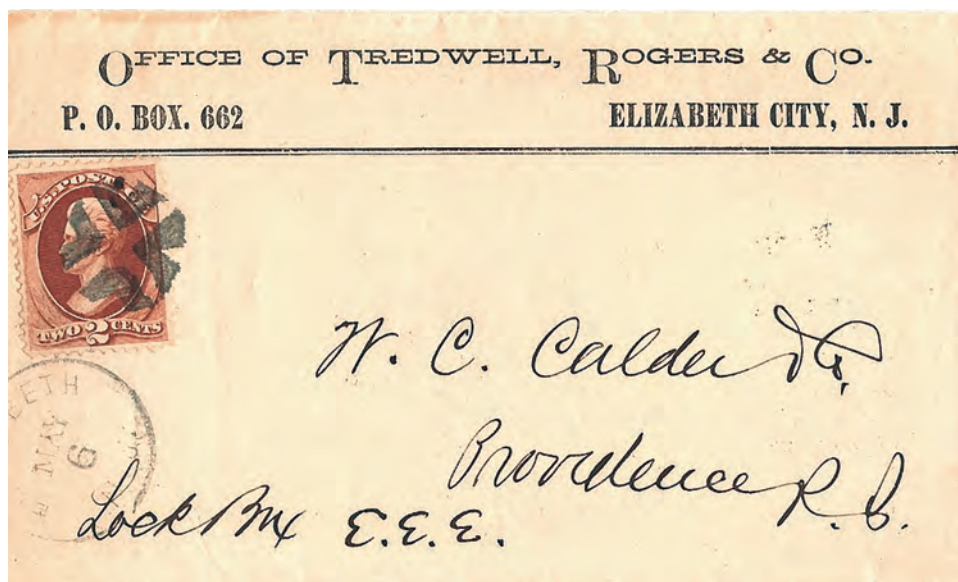 OFFICE OF TREDWELL, ROGERS & CO.
P. O. BOX. 662 ELIZABETH CITY, N. J.
U.S. POSTAGE
TWO 2 CENTS
W. C. Calder
BETH
MAY
6
Providence R. I.
Lock Box E. E. E.